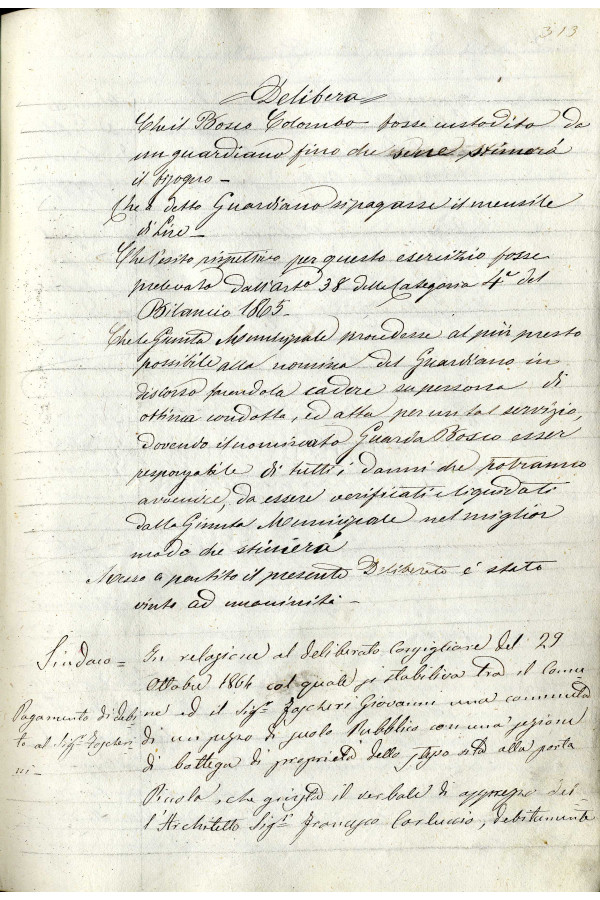 313
Delibera
Che il Bosco Colombo fosse custodito da
un guardiano fino che se ne stimerà
il bisogno —
Che a detto Guardiano si pagasse il mensile
di Lire —
Che l'esito rispettivo per questo esercizio fosse
prelevato dall'arto 38 della Categoria 4a del
Bilancio 1865 —
Che la Giunta Municipale procedesse al più presto
possibile alla nomina del Guardiano in
discorso facendola cadere su persona di
ottima condotta, ed atta per un tal servizio,
dovendo il nominato Guarda Bosco esser
responsabile di tutti i danni che potranno
avvenire, da essere verificati e liquidati
dalla Giunta Municipale nel miglior
modo che stimerà
Messo a partito il presente Deliberato è stato
vinto ad unanimità —
Sindaco =
Pagamento di debi
to al Sigr
ni —
In relazione al deliberato Consigliare del 29
Ottobre 1864 col quale si stabiliva tra il Comu
ne ed il Sigr Giovanni una commuta
di un pezzo di suolo Pubblico con una sezione
di bottega di proprietà dello stesso sita alla porta
Piccola, che giusta il verbale di apprezzo del
l'Architetto Sigr Francesco Carluccio, debitamente